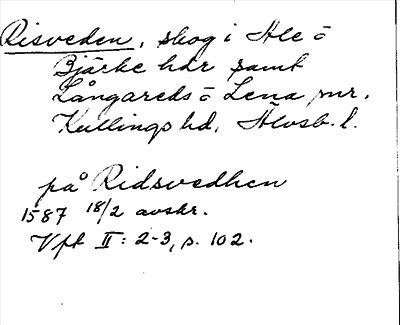 Risveden, skog i Ale o
Bjärke hdr samt
Långareds o Lena snr.
Kullings hd, Älvsb. l.
på Ridsvedhen
1587 18/2 avskr.
Vft II: 2-3, s. 102.